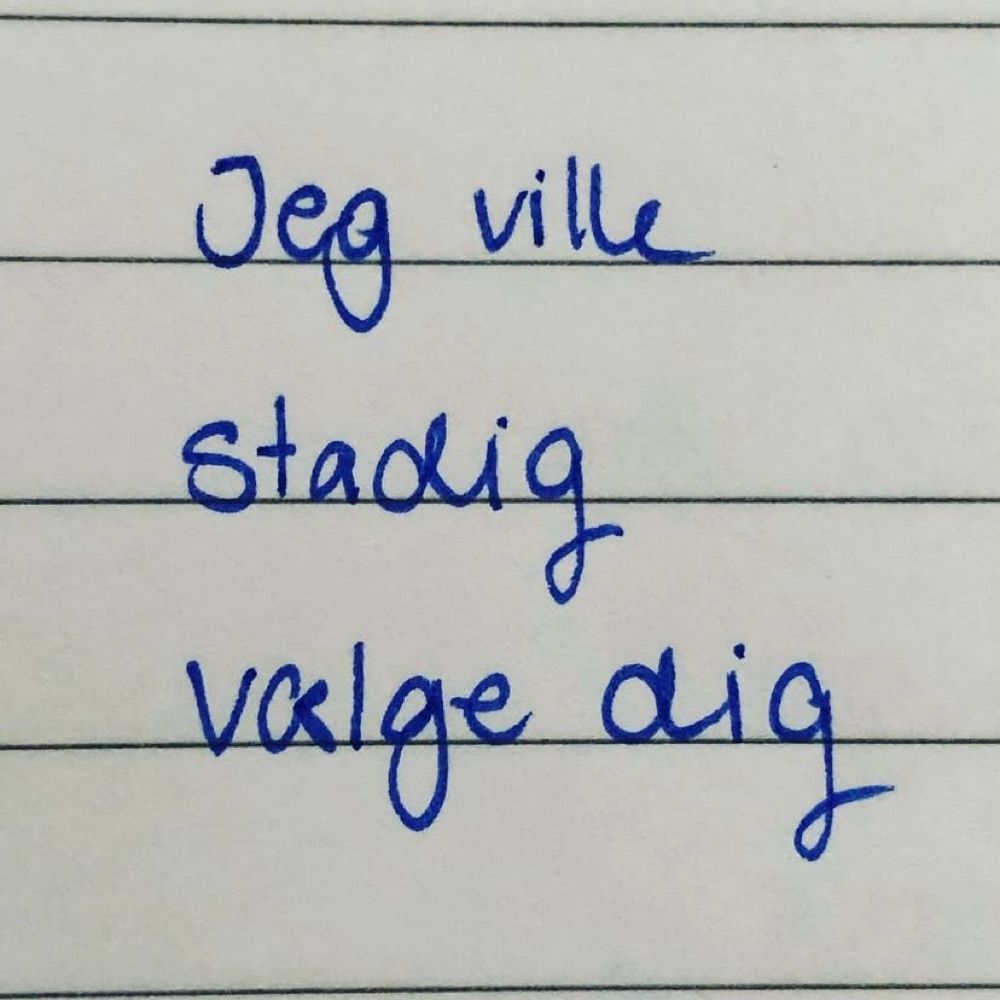 Jeg ville
stadig
vælge dig